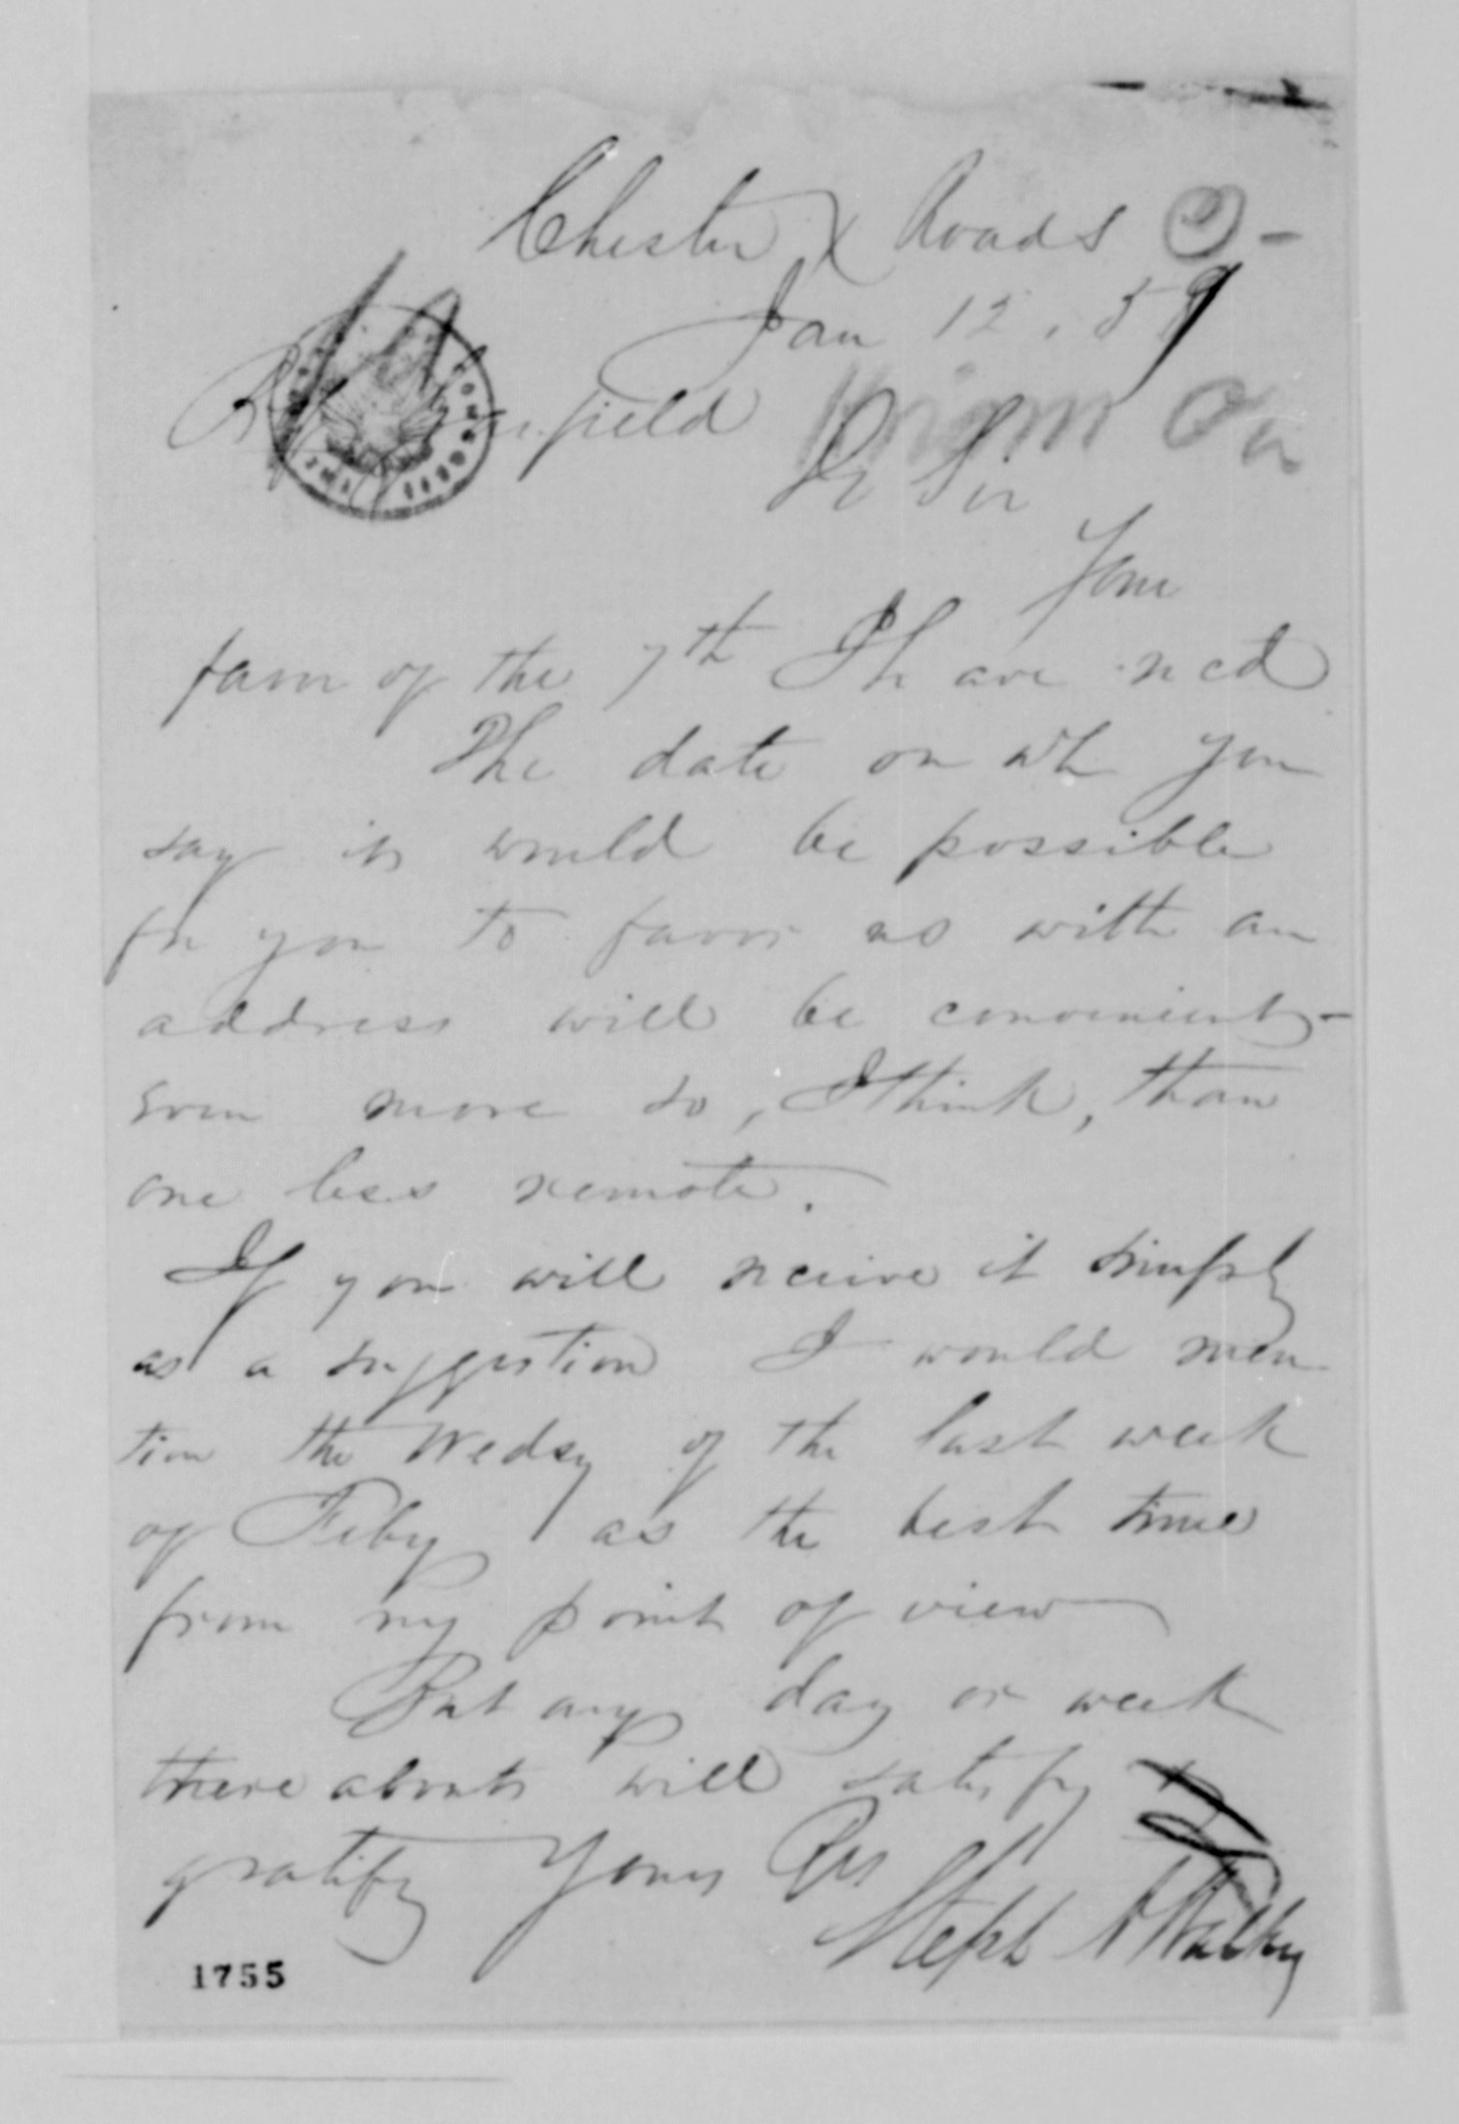 Chester X Roads O -
Jan 12. 59
field Hiram Ga
Dr Sir
Your
favor of the 7th I have recd
The date on wh you
say it would be possible
for you to favor us with an
address will be convenient -
even more so, I think, than
one less remote.
If you will receive it simply
as a suggestion I would men
tion the Wedsy of the last week
of Feby as the best time
from my point of view
But any day or week
there abouts will satisfy &
gratify Yours
Steph
1755